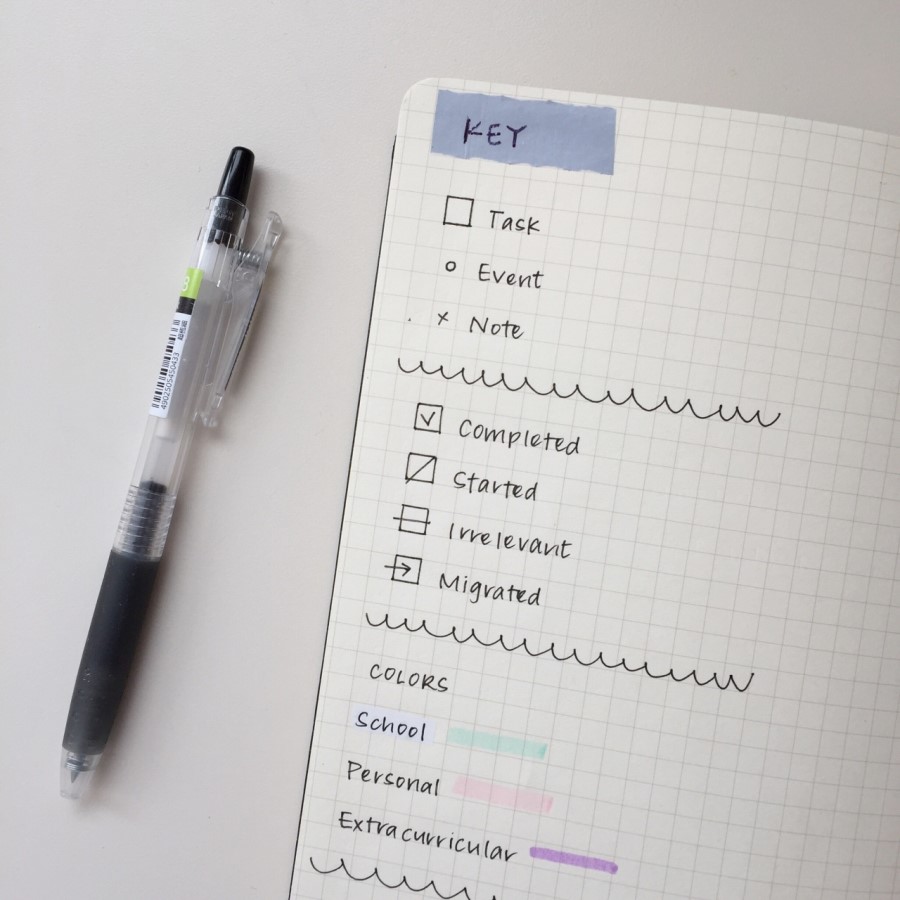 KEY
Task
Event
Note
Completed
Started
Irrelevant
Migrated
COLORS
School
Personal
Extracurricular
8
4902505450433